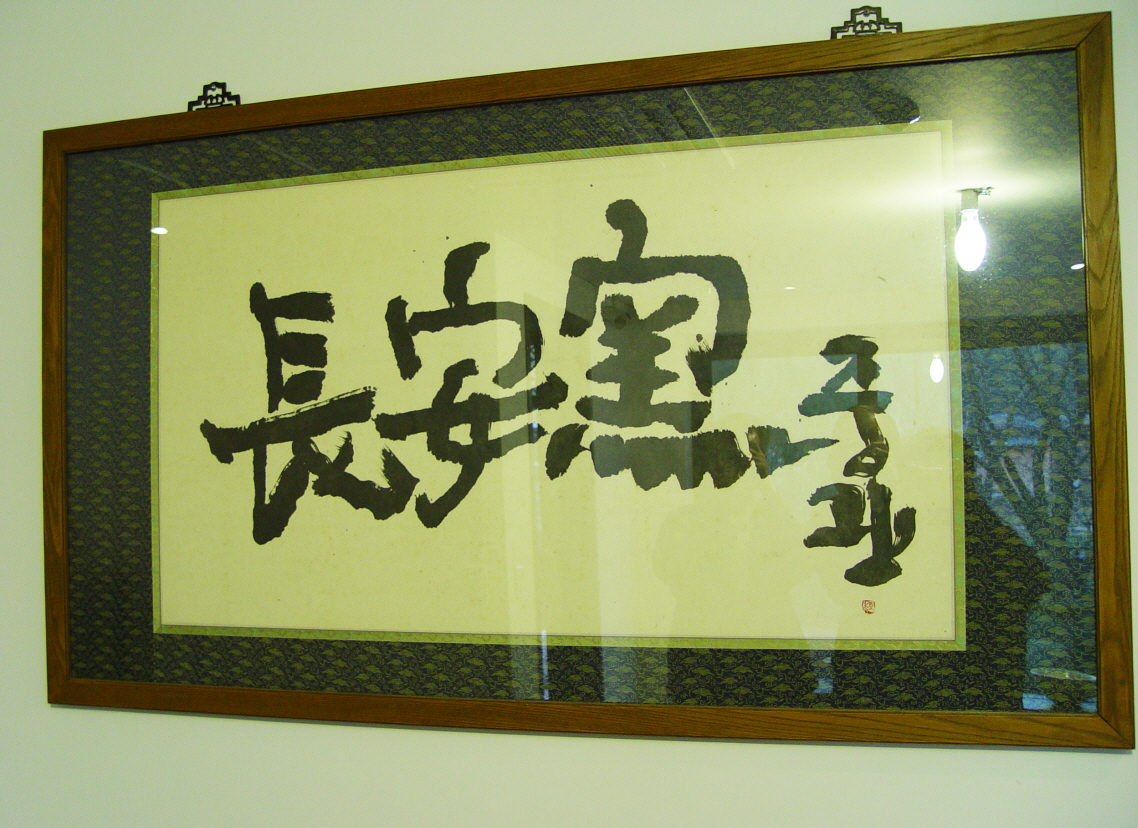 長安窯